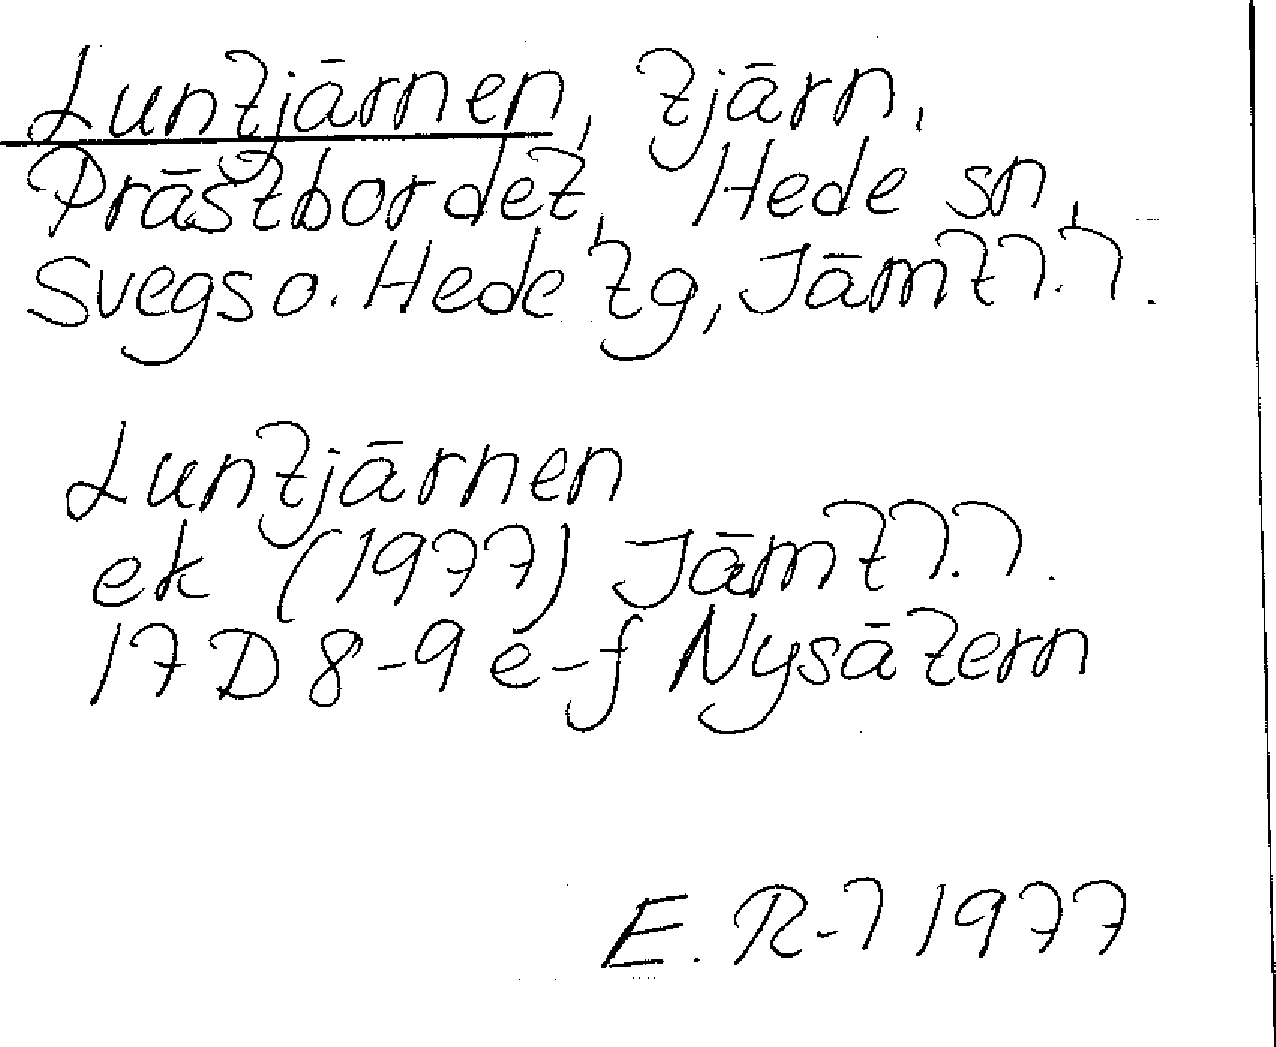 Luntjärnen, tjärn,
Prästbordet, Hede sn,
Svegs o. Hede tg, Jämtl.l.
Luntjärnen
ek (1977) Jämtl.l.
17D 8-9 e-f Nysätern
E. R-l 1977